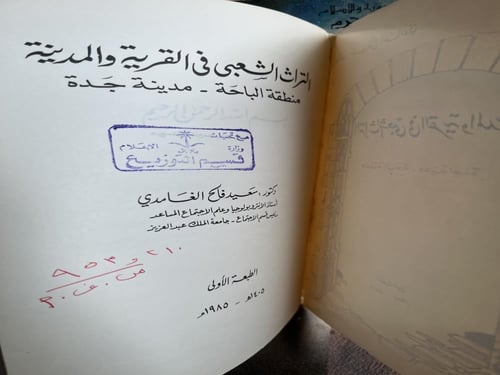 التراث الشعبي في القرية والمدينة
منطقة الباحة - مدينة جدة
مع تحيات
وزارة الإعلام
قسم التوزيع
دكتور. سعيد فالح الغامدي
أستاذ الأنتروبولوجيا وعلم الاجتماع المساعد
رئيس قسم الاجتماع - جامعة الملك عبد العزيز
٢١٠ و ٩٥٣
س. غ. م
الطبعة الأولى
١٤٠٥هـ - ١٩٨٥م